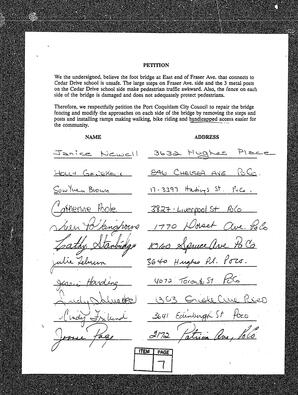 PETITION
We the undersigned, believe the foot bridge at East end of Fraser Ave. that connects to
Cedar Drive school is unsafe. The large steps on Fraser Ave. side and the 3 metal posts
on the Cedar Drive school side make pedestrian traffic awkward. Also, the fence on each
side of the bridge is damaged and does not adequately protect pedestrians.
Therefore, we respectfully petition the Port Coquitlam City Council to repair the bridge
fencing and modify the approaches on each side of the bridge by removing the steps and
posts and installing ramps making walking, bike riding and handicapped access easier for
the community.
NAME ADDRESS
Janice Newell 3632 Hughes Place
Holly 896 Chelsea Ave PoCo.
Brown 17-3397 Hastings St. PoCo.
Catherine Poole 3827 Liverpool St PoCo
1770 Dorset Ave. PoCo
Cathy Stanbridge Spruce Ave PoCo
Julie 3640 Hughes Pl. PoCo.
Harding 4072 Toronto St PoCo
1303
Cindy 3641 Edinburgh St Poco
Page 2172 Patricia Ave, PoCo
ITEM PAGE
7